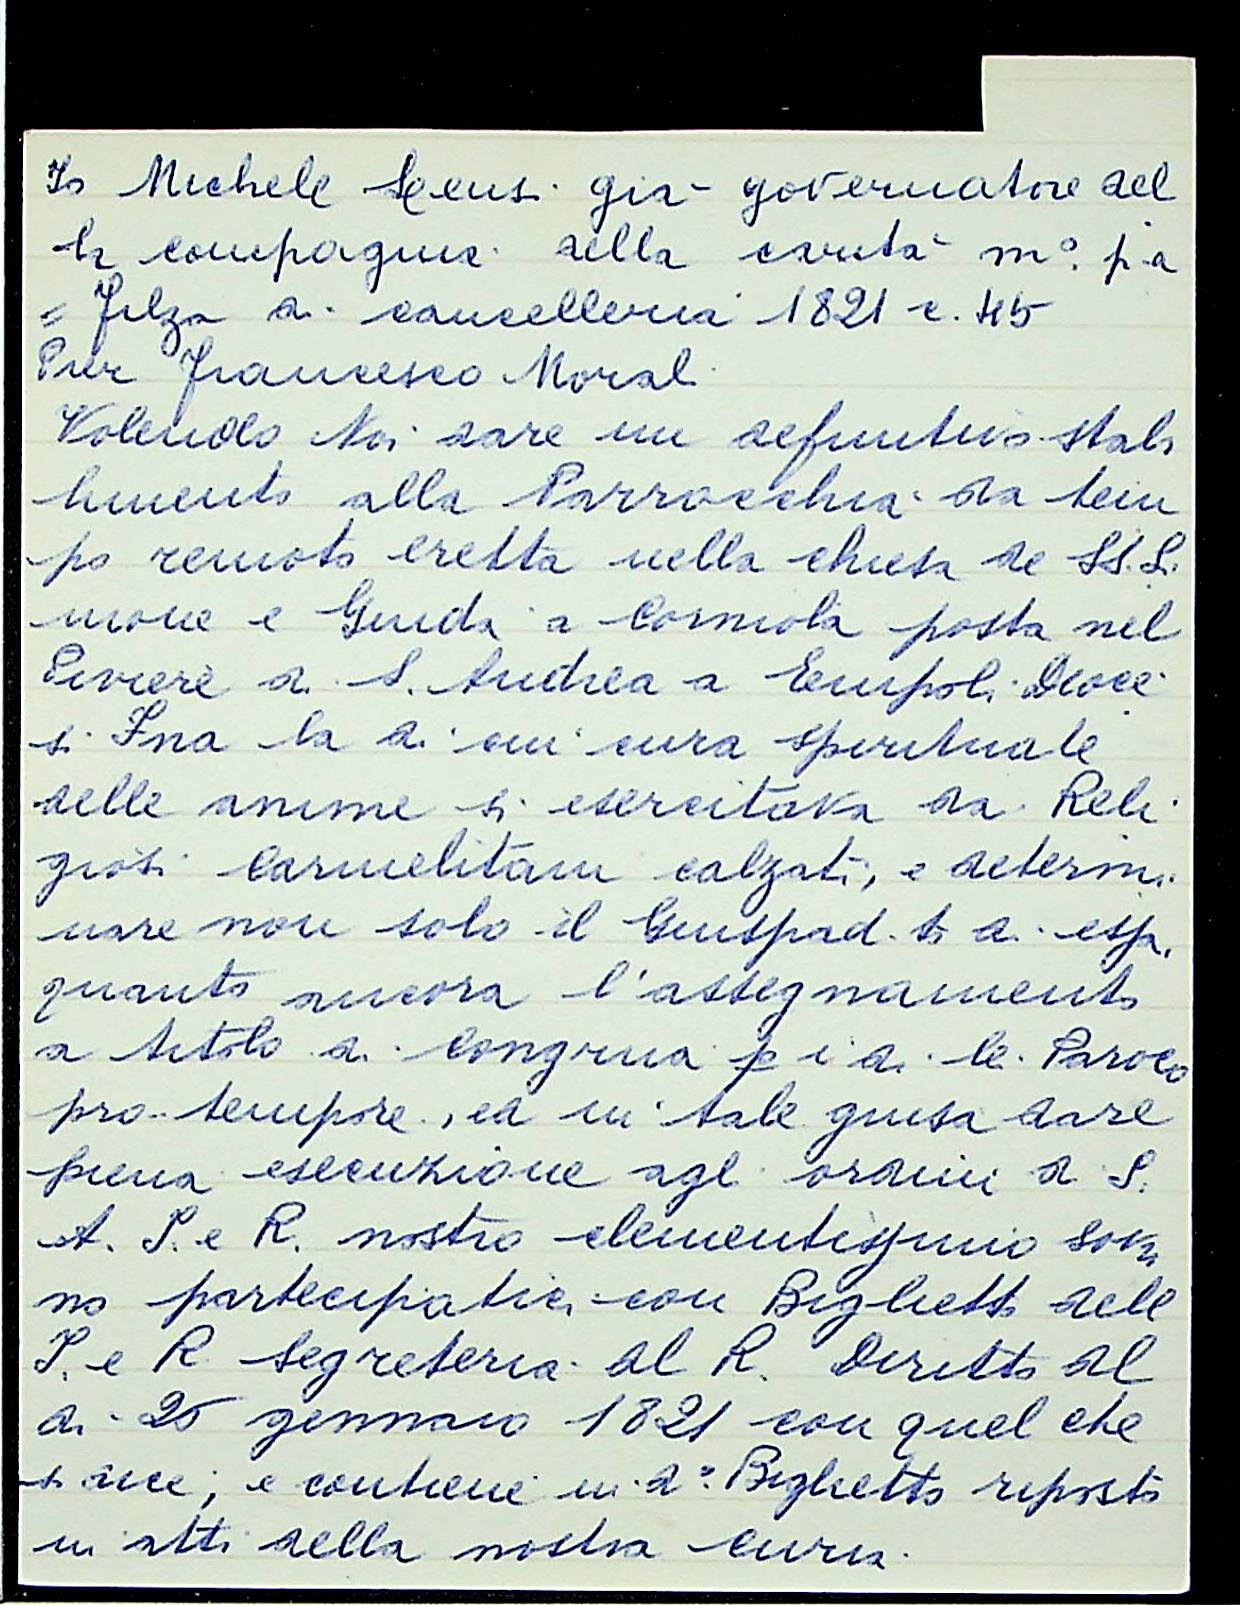 Io Michele già governatore del
la compagnia della carità m°. p.a
= Filza di cancelleria 1821 c. 45
Pier Francesco Morali
Volendo Noi dare un definitivo stabi
limento alla Parrocchia da tem
po remoto eretta nella chiesa de SS. Si
mone e Giuda a Corniola posta nel
Piviere di S. Andrea a Empoli Dioce
si Fna la di cui cura spirituale
delle anime si esercitava da Reli
giosi Carmelitani calzati, e determi
nare non solo il Giuspad.to di essa,
quanto ancora l'assegnamento
a titolo di congrua p i di lei Paroco
pro-tempore, ed in tale guisa dare
piena esecuzione agli ordini di S.
A. I. e R. nostro clementissimo sovra
no partecipatici con Biglietto dell
I. e R Segreteria del R. Diritto del
di 25 gennaio 1821 con quel che
si dice, e contiene in d°. Biglietto riposto
in atti della nostra curia.